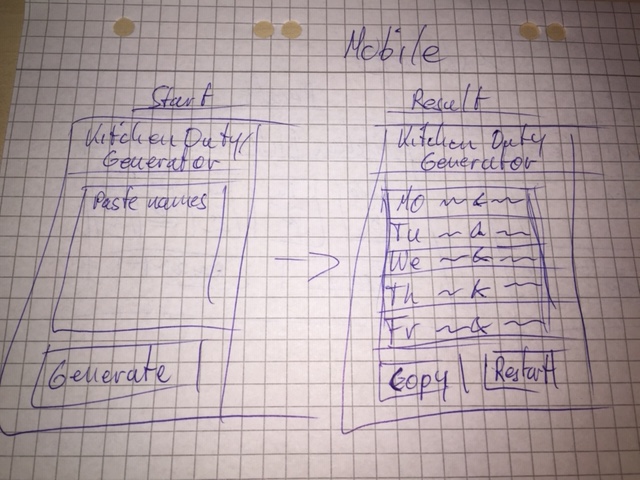 Mobile
Start
Kitchen Duty
Generator
Paste names
Generate
Result
Kitchen Duty
Generator
Mo ~ & ~
Tu ~ & ~
We ~ & ~
Th ~ & ~
Fr ~ & ~
Copy
Restart